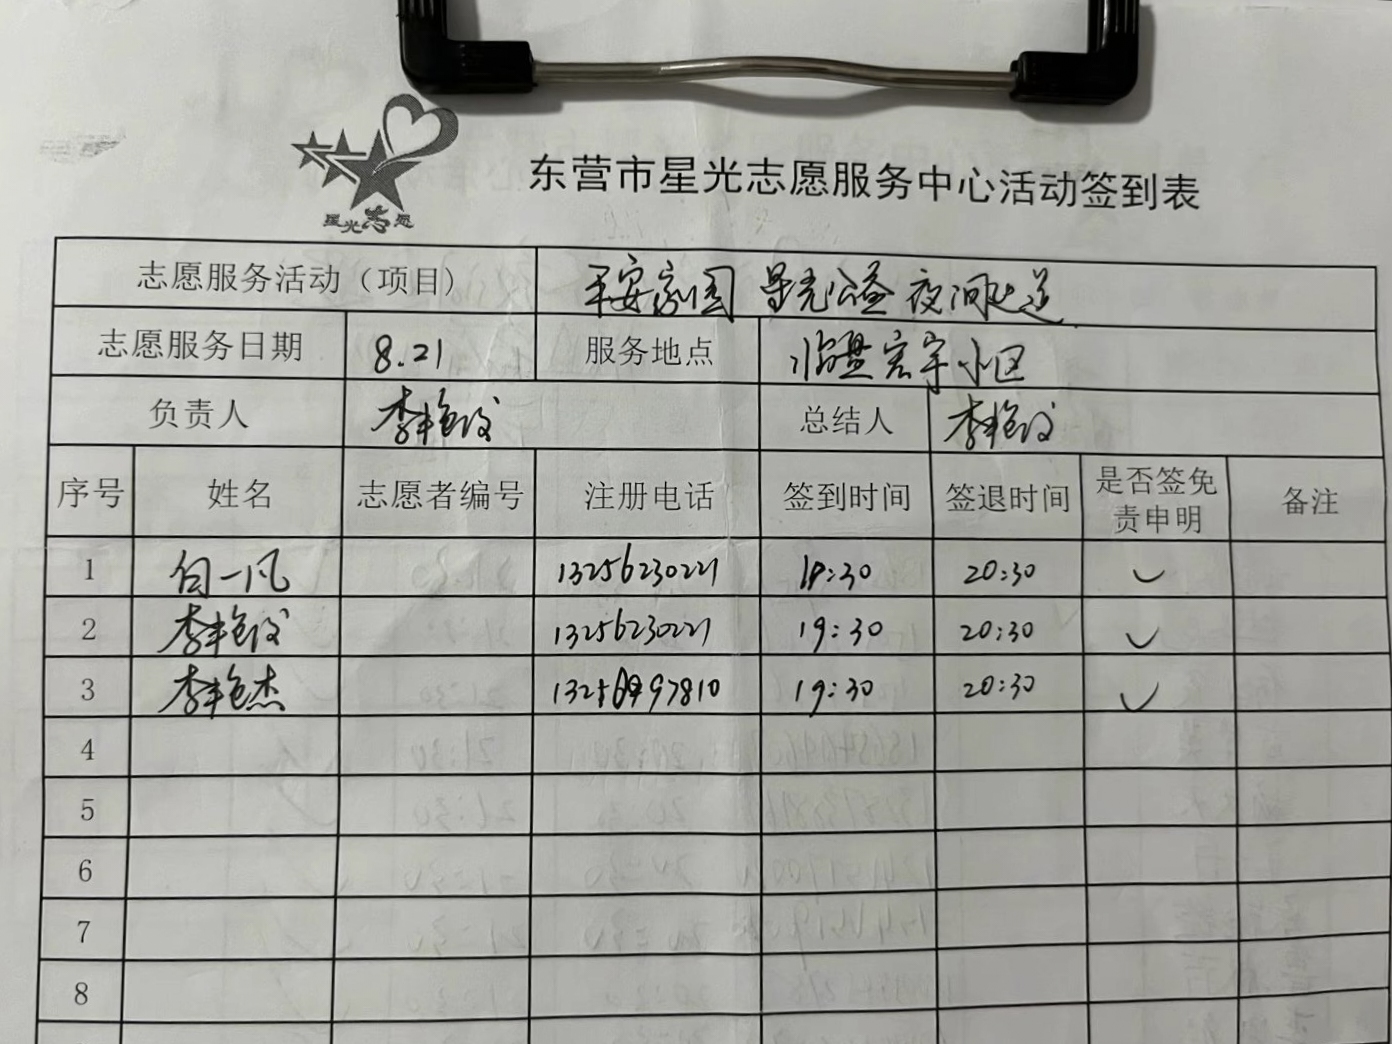 星光志愿
东营市星光志愿服务中心活动签到表
志愿服务活动（项目） 平安家园 星光公益 夜间
志愿服务日期 8.21 服务地点 临盘宏宇小区
负责人 李艳 总结人 李艳
序号 姓名 志愿者编号 注册电话 签到时间 签退时间 是否签免责申明 备注
1 白一凡 13256230221 19:30 20:30 ✓
2 李艳 13256230221 19:30 20:30 ✓
3 李艳杰 97810 19:30 20:30 ✓
4
5
6
7
8